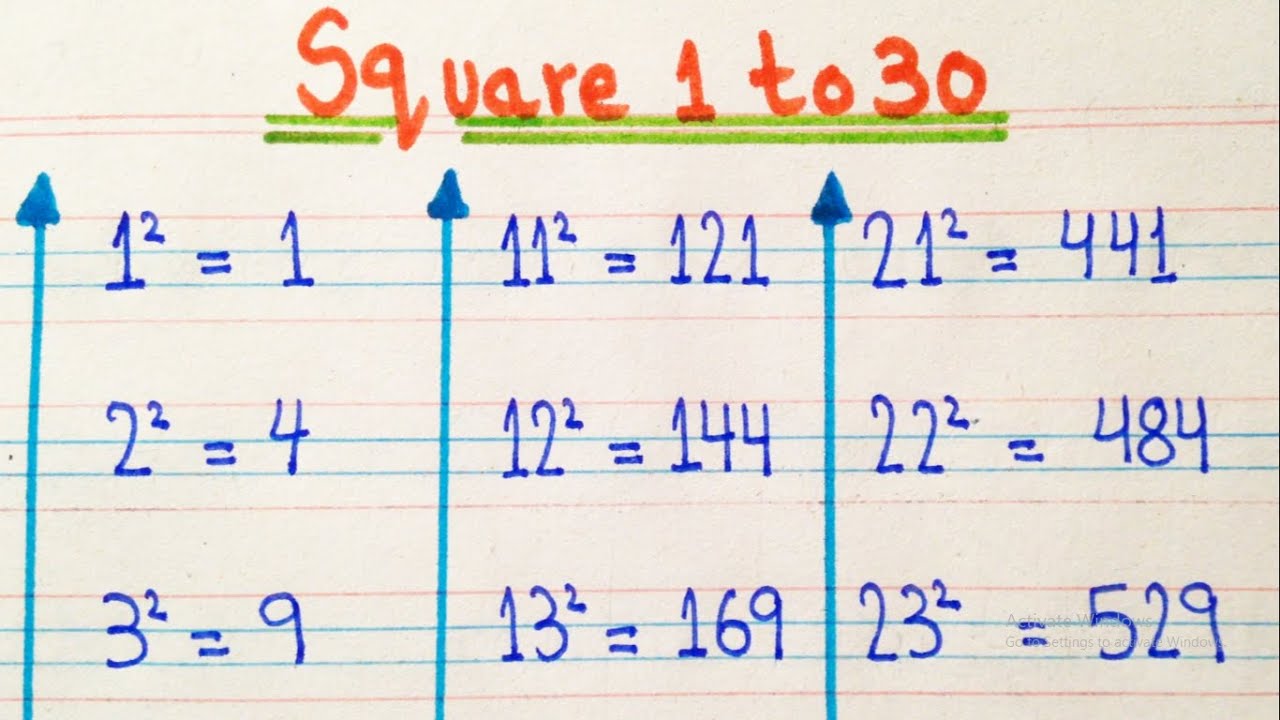 Square 1 to 30
1² = 1
2² = 4
3² = 9
11² = 121
12² = 144
13² = 169
21² = 441
22² = 484
23² = 529
Activate Windows
Go to Settings to activate Windows.